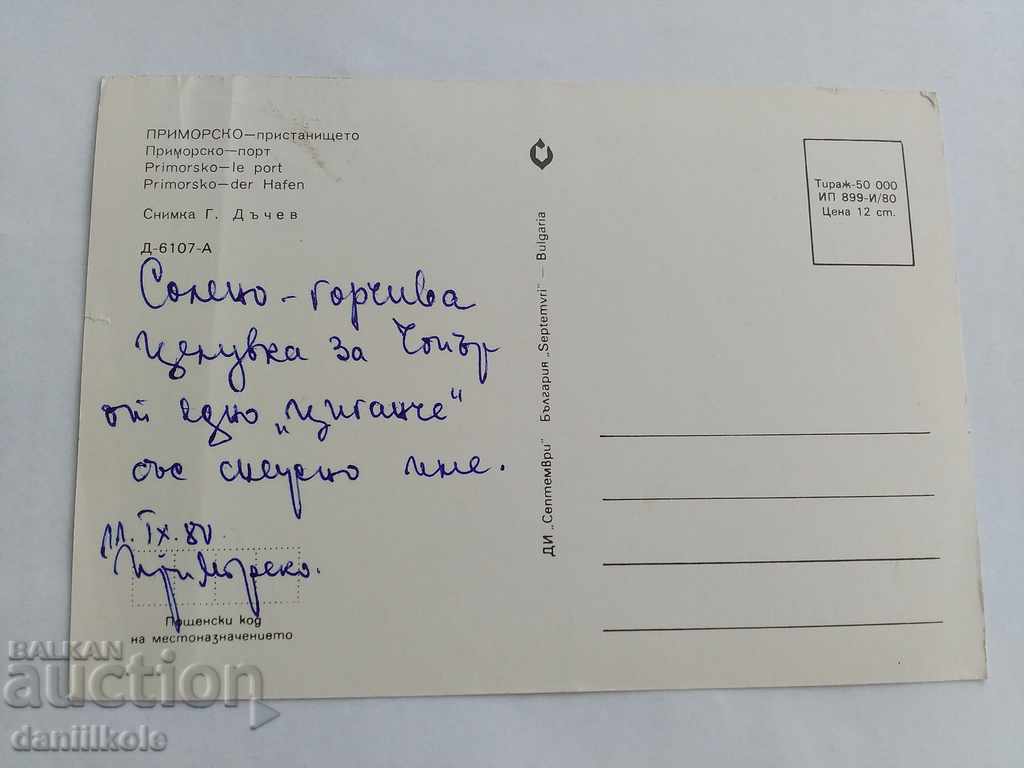 ПРИМОРСКО—пристанището
Приморско—порт
Primorsko—le port
Primorsko—der Hafen
Снимка Г. Дъчев
Д-6107-А
Солено - горчива
целувка за Чопър
от едно „циганче“
със име.
11. IX. 80
Приморско.
Пощенски код
на местоназначението
ДИ „Септември“ България „Septemvri“ — Bulgaria
Тираж-50 000
ИП 899-И/80
Цена 12 ст.
BALKAN
auction
daniilkole